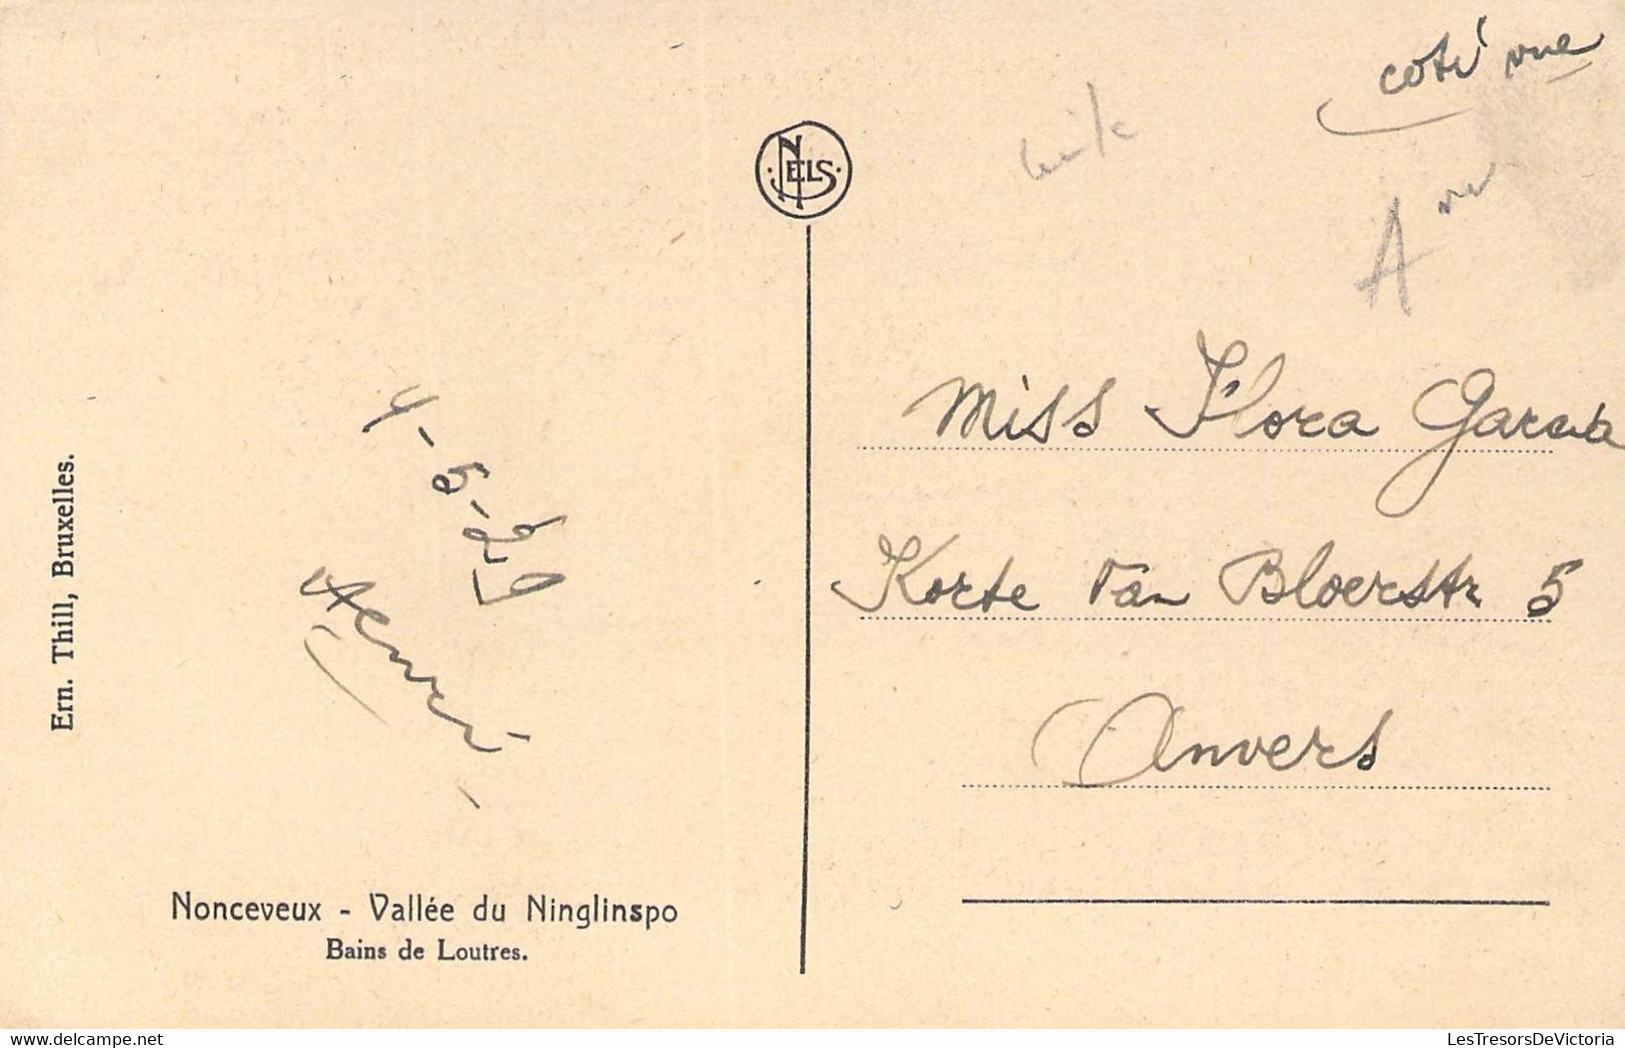 coté vue
NELS
Miss Flora Garcia
Korte Van Bloerstr 5
Anvers
4-5-29
Henri
Ern. Thill, Bruxelles.
Nonceveux - Vallée du Ninglinspo
Bains de Loutres.
LesTresorsDeVictoria